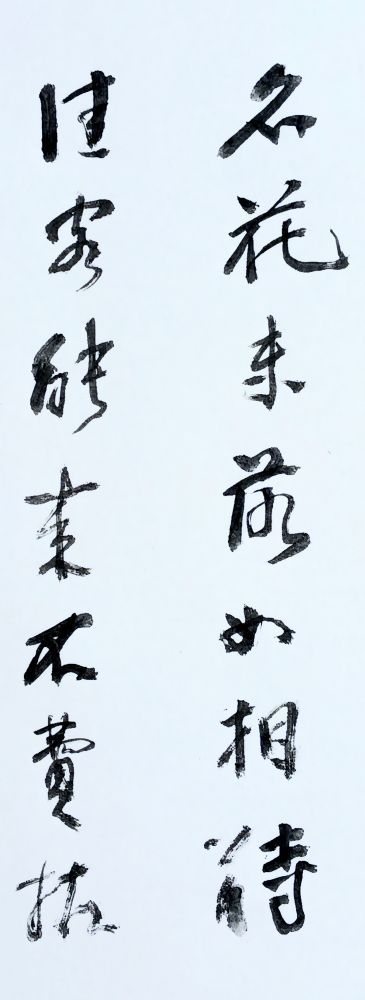 名花未落如相待
佳客能來不費招